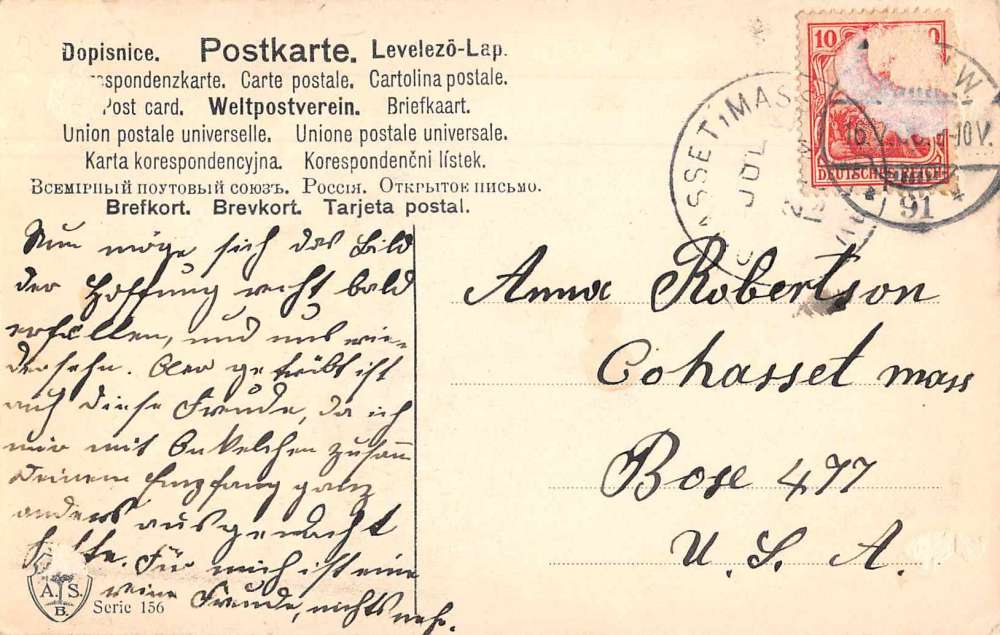 Dopisnice. Postkarte. Levelező-Lap.
spondenzkarte. Carte postale. Cartolina postale.
Post card. Weltpostverein. Briefkaart.
Union postale universelle. Unione postale universale.
Karta korespondencyjna. Korespondenčni lístek.
Всемірный поутовый союзъ. Россія. Открытое письмо.
Brefkort. Brevkort. Tarjeta postal.
10 0
DEUTSCHES REICH
W
16.V. -10V.
91
ASSET, MASS
JUL
2
Nun möge sich das Bild
der Hoffnung recht bald
erfüllen, und uns wie-
dersehn. Aber getrübt ist
auch diese Freude, da ich
mir mit Onkelchen zusam
Deinen Empfang ganz
anders ausgemacht
hatte. Für mich ist eine
reine Freude, nichts mehr.
Anna Robertson
Cohasset mass
Boxe 477
U. S. A.
A. S.
B.
Serie 156